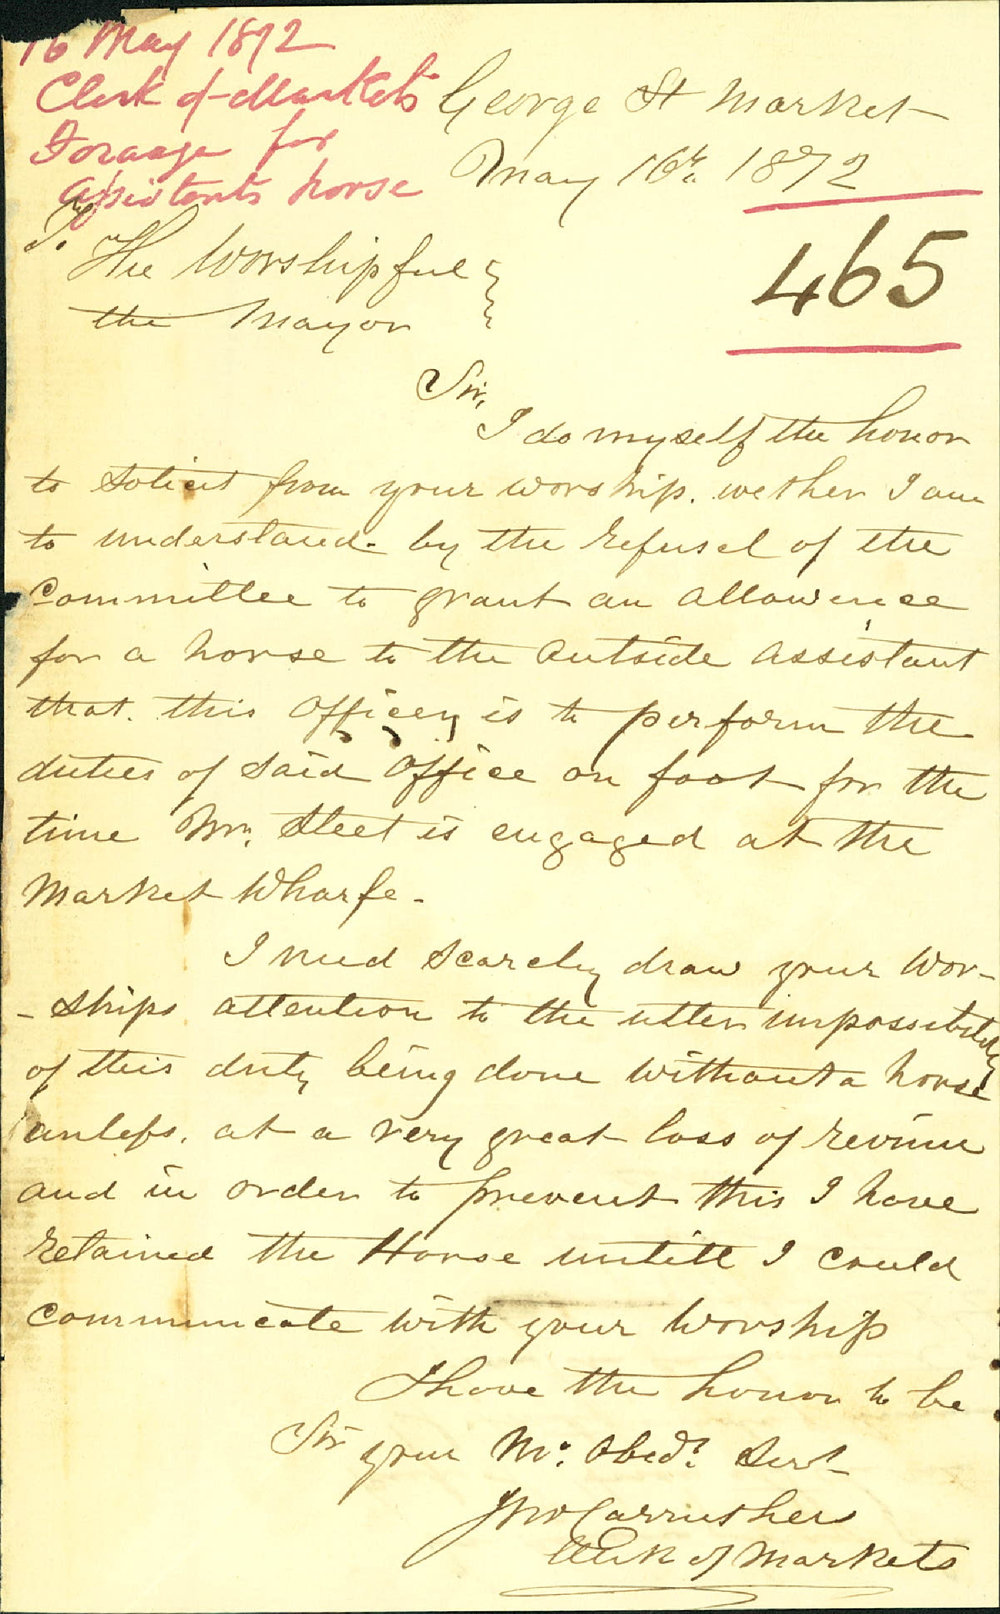 16 May 1872
Clerk of Markets
Forage for
Assistants horse
George St Market
May 16th 1872
465
To
The Worshipful
the Mayor
Sir,
I do myself the honor
to solicit from your worship. wether I am
to understand. by the refusel of the
Committee to grant an allowence
for a horse to the outside assistant
that. this officer, is to perform the
duties of said office on foot for the
time Mr. Steet is engaged at the
Market Wharfe.
I need scarcely draw your Wor-
-ships attention to the utter impossibility
of this duty being done without a horse
unless. at a very great loss of revinue
and in order to prevent this I have
retained the Horse untill I could
communicate with your Worship
I have the honor to be
Sir your Mo. Obedt. Servt
Jno Carruthers
Clerk of Markets